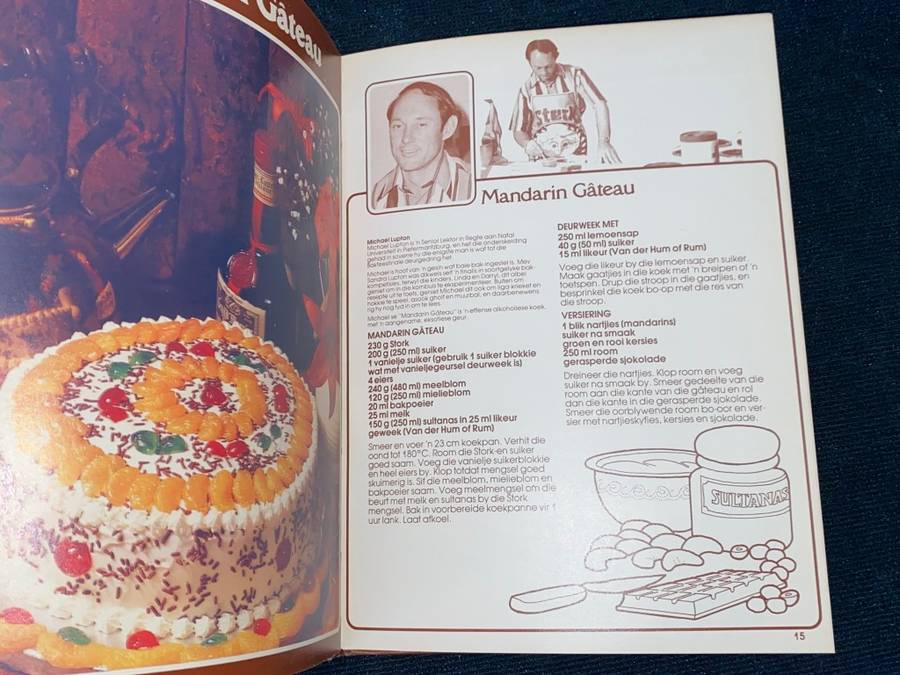 Gâteau
Ster
Mandarin Gâteau
Michael Lupton
Michael Lupton is 'n Senior Lektor in Regte aan Natal
Universiteit in Pietermaritzburg, en het die onderskeiding
gehad in sovere hy die enigste man is wat tot die
Bakfeesfinale deurgedring het.
Michael is hoof van 'n gesin wat baie bak-ingestel is. Mev
Sandra Lupton was dikwels self 'n finalis in soortgelyke bak-
kompetisies, terwyl die kinders, Linda en Darryl, dit altyd
geniet om in die kombuis te eksperimenteer. Buiten om
resepte uit te toets, geniet Michael dit ook om liga krieket en
hokkie te speel, asook gholf en muurbal, en daarbenewens
hy nog tyd in om te lees.
Michael sê "Mandarin Gâteau" is 'n effense alkoholiese koek,
met 'n aangename, eksotiese geur.
MANDARIN GÂTEAU
230 g Stork
200 g (250 ml) suiker
1 vanielje suiker (gebruik 1 suiker blokkie
wat met vanieljegeursel deurweek is)
4 eiers
240 g (480 ml) meelblom
120 g (250 ml) mielieblom
20 ml bakpoeier
25 ml melk
150 g (250 ml) sultanas in 25 ml likeur
geweek (Van der Hum of Rum)
Smeer en voer 'n 23 cm koekpan. Verhit die
oond tot 180°C. Room die Stork en suiker
goed saam. Voeg die vanielje suikerblokkie
en heel eiers by. Klop totdat mengsel goed
skuimerig is. Sif die meelblom, mielieblom en
bakpoeier saam. Voeg meelmengsel om die
beurt met melk en sultanas by die Stork
mengsel. Bak in voorbereide koekpanne vir 1
uur lank. Laat afkoel.
DEURWEEK MET
250 ml lemoensap
40 g (50 ml) suiker
15 ml likeur (Van der Hum of Rum)
Voeg die likeur by die lemoensap en suiker.
Maak gaatjies in die koek met 'n breipen of 'n
toetspen. Drup die stroop in die gaatjies, en
besprinkel die koek bo-op met die res van
die stroop.
VERSIERING
1 blik nartjies (mandarins)
suiker na smaak
groen en rooi kersies
250 ml room
gerasperde sjokolade
Dreineer die nartjies. Klop room en voeg
suiker na smaak by. Smeer gedeelte van die
room aan die kante van die gâteau en rol
dan die kante in die gerasperde sjokolade.
Smeer die oorblywende room bo-oor en ver-
sier met nartjieskyfies, kersies en sjokolade.
SULTANAS
15